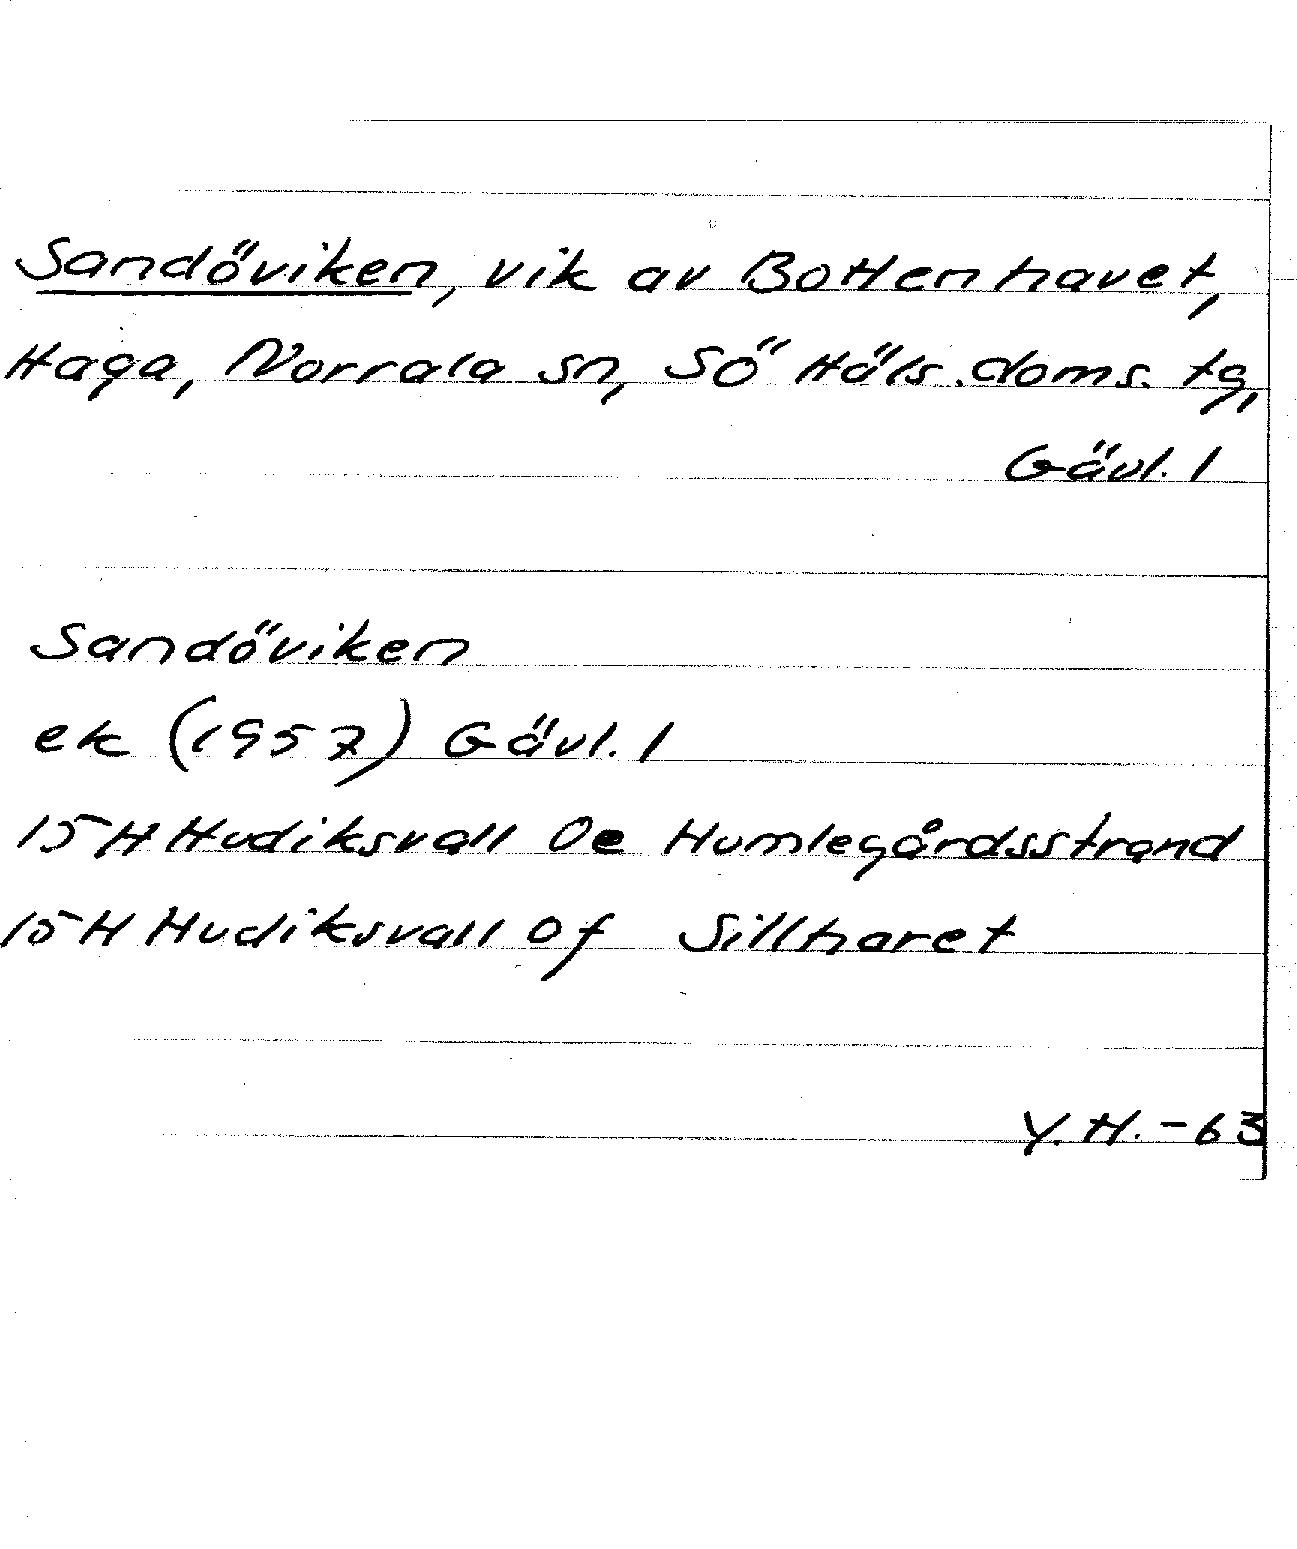 Sandöviken, vik av Bottenhavet,
Haga, Norrala sn, Sö Häls. doms. tg,
Gävl. l
Sandöviken
ek (1957) Gävl. l
15H Hudiksvall 0e Humlegårdsstrand
15H Hudiksvall 0f Sillharet
Y. H. -63